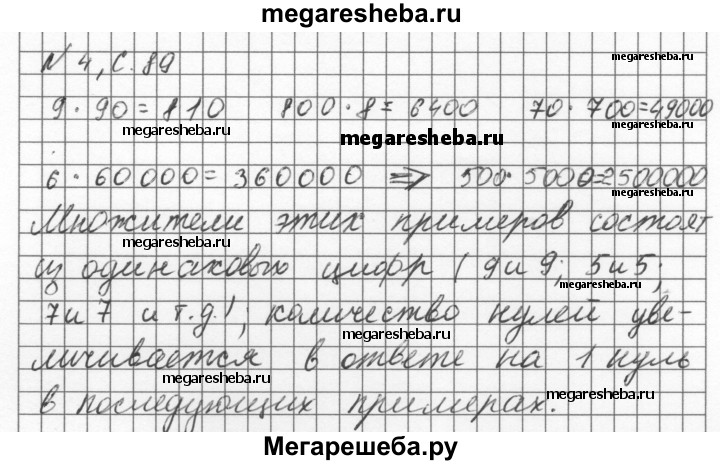 megaresheba.ru
N 4, с. 89
megaresheba.ru
9 · 90 = 810 800 · 8 = 6400 70 · 700 = 49000
megaresheba.ru megaresheba.ru megaresheba.ru
6 · 60000 = 360000 ⇒ 500 · 5000 = 2500000
Множители этих примеров состоят
megaresheba.ru megaresheba.ru
из одинаковых цифр (9 и 9; 5 и 5;
megaresheba.ru
7 и 7 и т.д.); количество нулей уве-
megaresheba.ru
личивается в ответе на 1 нуль
megaresheba.ru megaresheba.ru
в последующих примерах.
Мегарешеба.ру